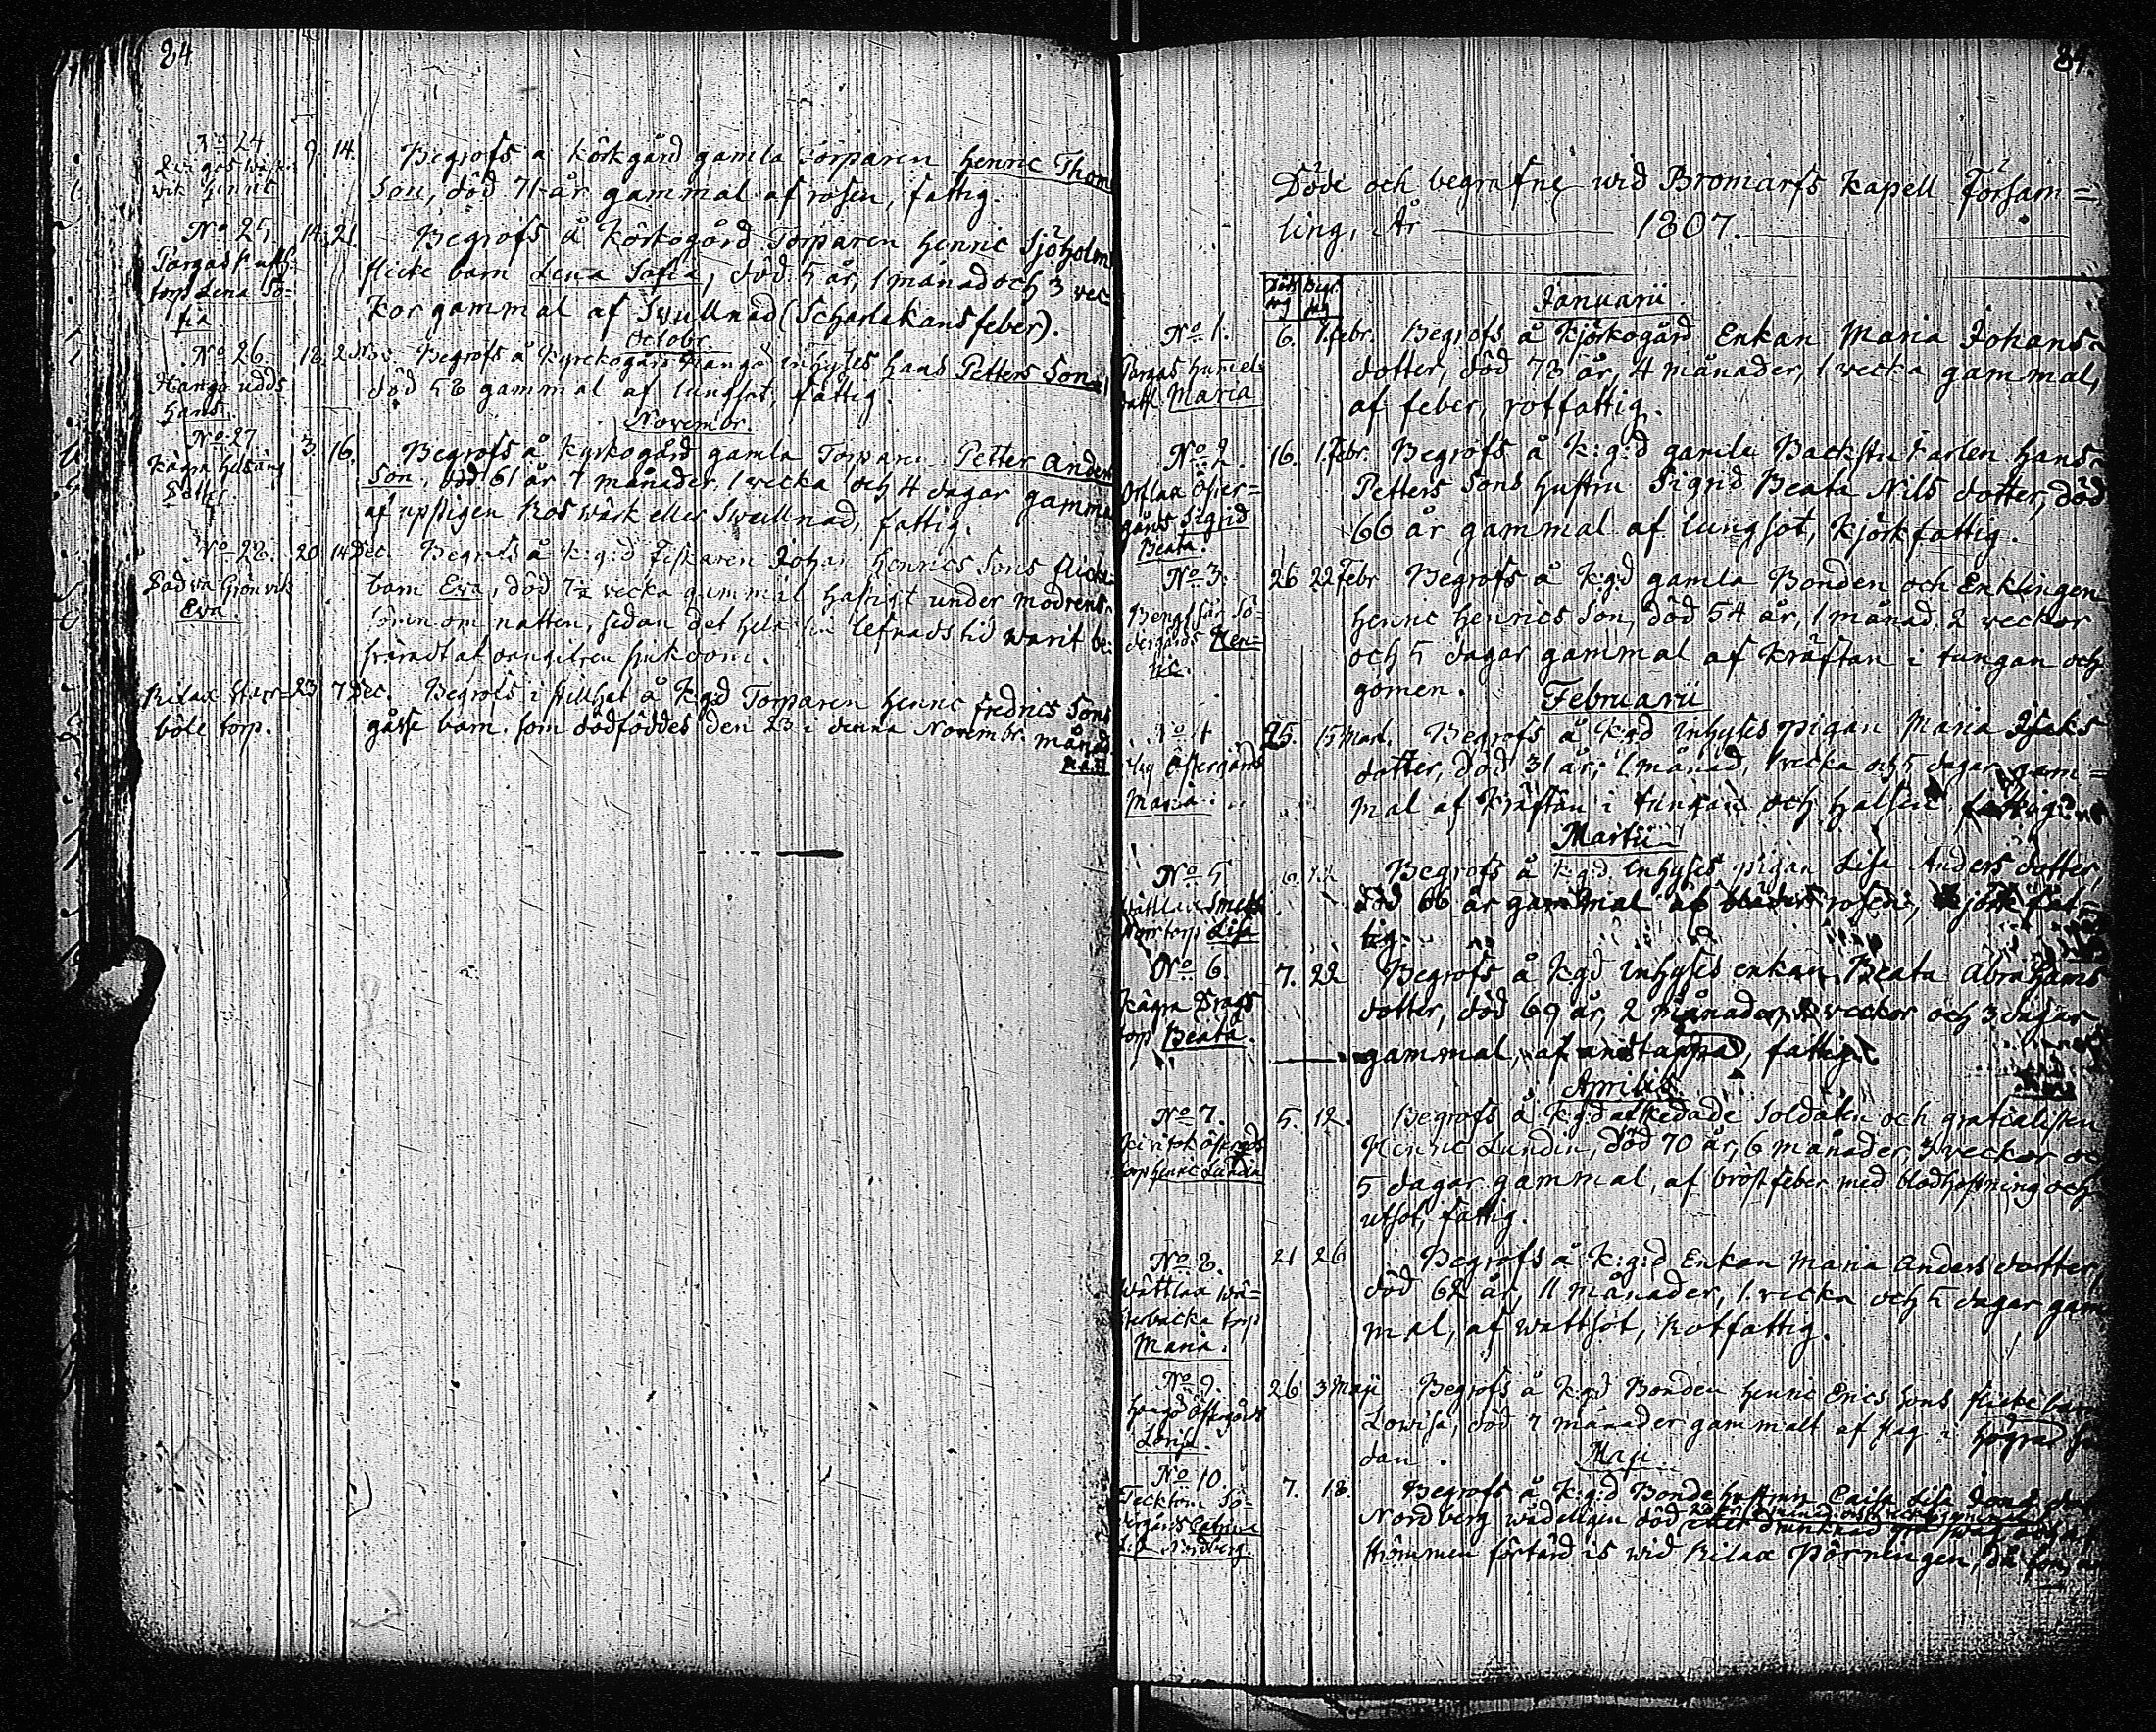 84
No 24
wik Henric
9. 14. Begrofs å körkgård gamla Torparen Henric Thom
Son, död 71 år gammal af rosen, fattig.
No 25
torp Lena So-
fia
14. 21. Begrofs å Körkogård Torparen Henric Sjöholm
flicke barn Lena Sofia, död 5 år, 1 månad och 3 vec-
kor gammal af Swullnad (Scharlakansfeber).
Octobr
No 26.
Hangö udds
Hans.
18. 2 Nov. Begrofs å Kyrckogård Hangö inhyses Hans Petters Son
död 58 gammal af lungsot, fattig.
Novembr.
No 27
Petter.
3. 16. Begrofs å Kyrkogård gamla Torparen Petter Anders
Son, död 61 år 7 månader, 1 wecka och 4 dagar gamma
af upstigen Ros wärk eller Swullnad, fattig.
No 28.
Eva.
20 14 Dec. Begrofs å K:g:d Fiskaren Johan Henrics Sons flicke
barn Eva, död 7½ vecka gammal hastigt under modrens
sömn om natten, sedan det hela sin lefnads tid warit be-
swäradt af sjukdom.
Rilax Starr-
böle torp.
23 7 Dec. Begrofs i stillhet å K:g:d Torparen Henric Fredrics Sons
gåsse barn som dödföddes den 23 i denna Novembr. månad.
84.
Döde och begrafne wid Bromarfs Kapell Försam=
ling, År 1807.
Januarii
No 1.
Maria
6. 1. febr. Begrofs å Kjörkogård Enkan Maria Johans-
dotter, död 78 år, 4 månader, 1 vecka gammal,
af feber, rotfattig.
No 2.
Öster=
gårds Sigrid
Beata.
16. 1. febr. Begrofs å K:g:d gamla Backstu Karlen Hans
Petters Sons hustru Sigrid Beata Nils dotter, död
66 år gammal af lungsot, Kjörkfattig.
No 3.
Bengtsår Sö-
dergårds Hen-
ric.
26 22 Febr Begrofs å K:g:d gamla Bonden och Enklingen
Henric Henrics Son, död 54 år, 1 månad, 2 veckor
och 5 dagar gammal af Kräftan i tungan och
gomen.
Februarii
No 4
Östergård
Maria.
25. 15 Mart. Begrofs å K:g:d Inhyses pigan Maria Isaks
dotter, död 31 år, 1 månad, 1 vecka och 5 dagar gam=
mal af Kräftan i tungan och halsen, fattig.
Martii
No 5
torp Lisa
6. 22 Begrofs å K:g:d. Inhyses pigan Lisa Anders dotter,
död 66 år gammal af rosen, Kjörk fat-
tig.
No 6.
torp Beata.
7. 22 Begrofs å K:g:d Inhyses enkan Beata Abrahams
dotter, död 69 år, 2 månader, veckor och 3 dagar
gammal, af andtäppa, fattig.
Aprilis
No 7.
torp Henric Lundin
5. 12. Begrofs å K:g:d afskedade Soldaten och gratialisten
Henric Lundin, död 70 år, 6 månader, 3 veckor oc
5 dagar gammal, af bröstfeber med blodhostning och
utsot, fattig.
No 8.
Wättlax Wä-
sterbacka torp
Maria.
21 26 Begrofs å K:g:d Enkan Maria Anders dotter,
död 62 år, 11 månader, 1 vecka och 5 dagar gam
mal, af wattsot, Rotfattig.
No 9.
Hangö Östergårds
Lovisa.
26 3 Maji Begrofs å K:g:d Bonden Henric Erics Sons flicke barn
Lowisa, död 7 månader gammalt af slag i högra si
dan.
Maji
No 10.
Tecktom Sö-
dergårds Catrina
Lisa Nordberg.
7. 18. Begrofs å K:g:d Bonde hustrun Caisa Lisa
Nordberg wådeligen död
strömmen förtärd is wid Rilax